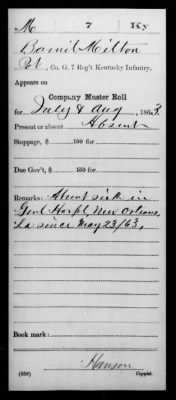 M 7 Ky
Bamil Milton
Pvt, Co. G, 7 Reg't Kentucky Infantry.
Appears on
Company Muster Roll
for July & Aug, 1863.
Present or absent Absent
Stoppage, $ 100 for
Due Gov't, $ 100 for
Remarks: Absent sick in
Genl Hospl, New Orleans,
La since May 23/63.
Book mark:
Hanson
(358) Copyist.